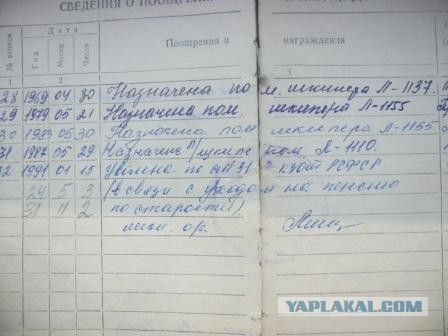 СВЕДЕНИЯ О ПООЩРЕ
№ записи Дата Поощрения и награждения
Год Месяц Число
1 2 3
28 1969 04 30 Назначена пом. шкипера Л-1137.
29 1979 05 21 Назначена пом. шкипера Л-1155
30 1983 05 30 Назначена пом шкипера Л-1155
31 1987 05 29 Назначена п/шкипером Л-1110.
32 1991 01 15 Уволена по ст 31 КЗОТ РСФСР
24 5 3 (в связи с уходом на пенсию
31 11 2 по старости).
YAPLAKAL.COM